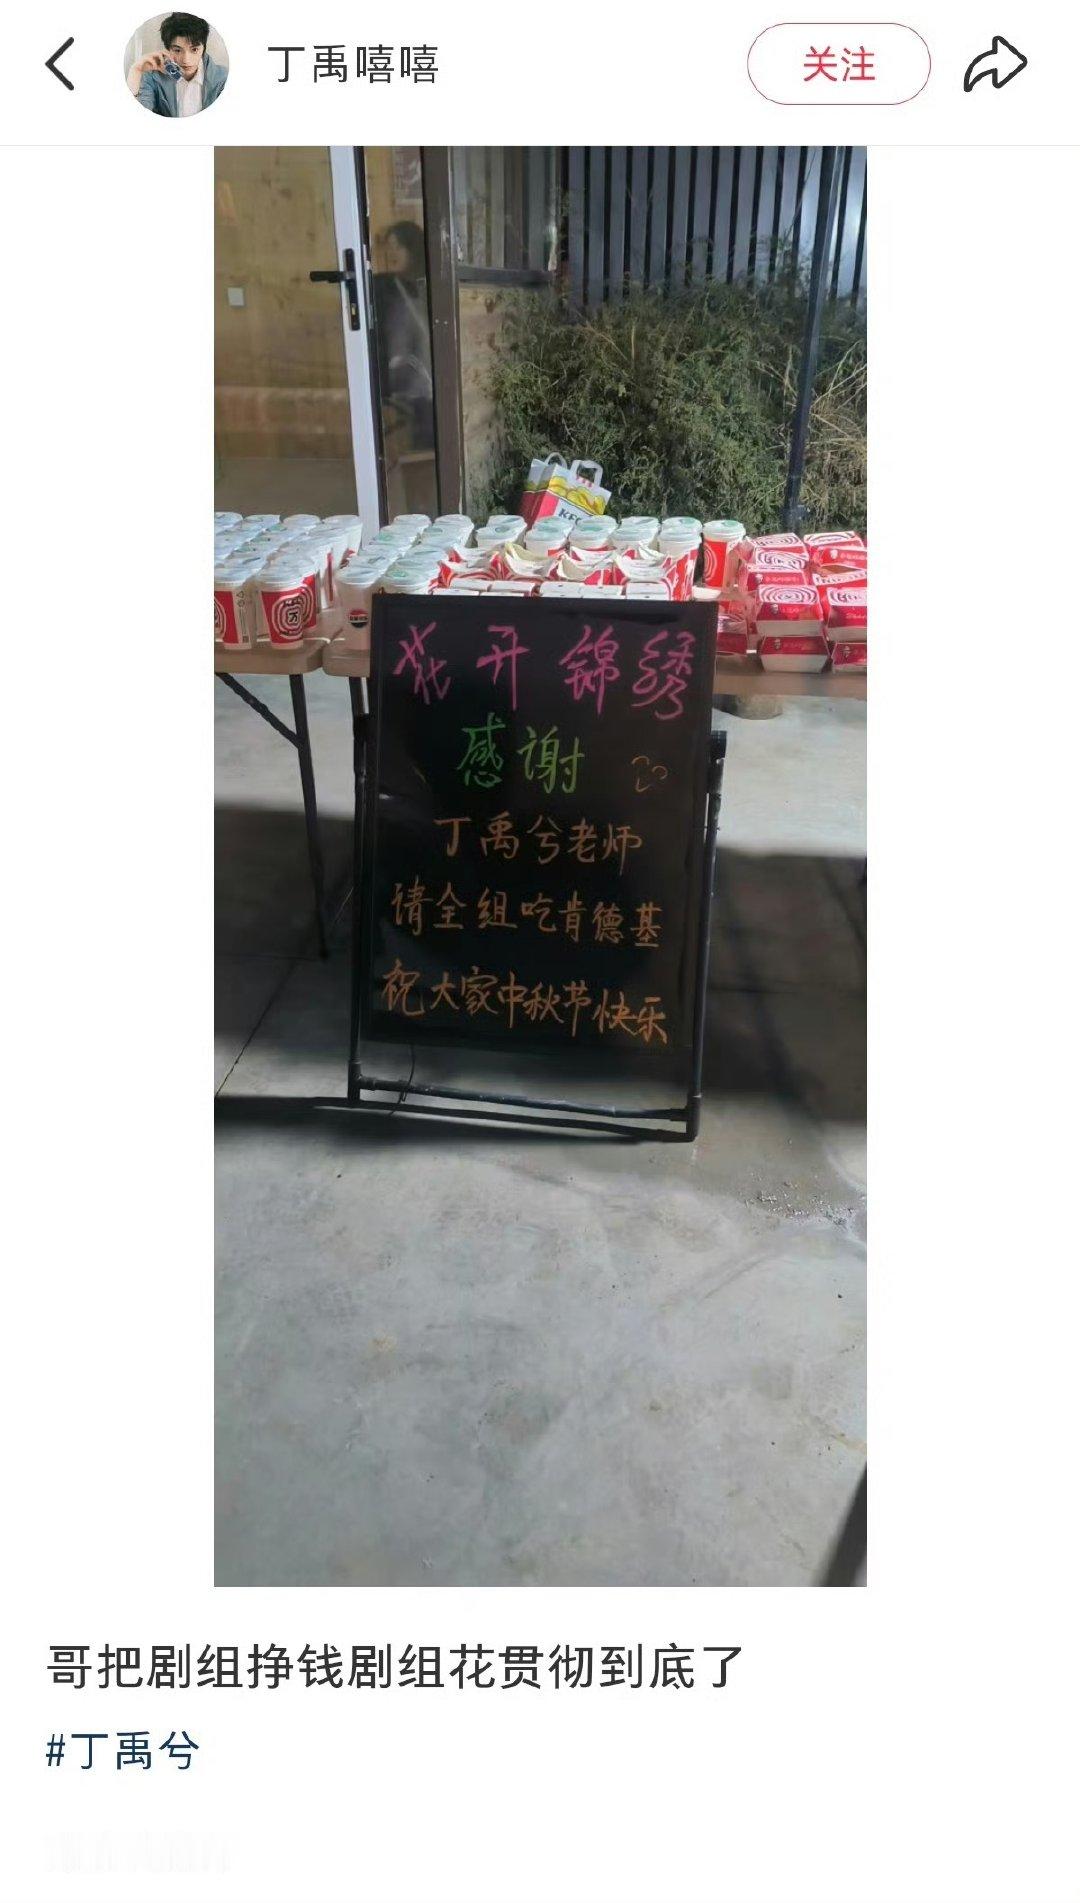 丁禹嘻嘻
关注
KFC
花开锦绣
感谢
丁禹兮老师
请全组吃肯德基
祝大家中秋节快乐
哥把剧组挣钱剧组花贯彻到底了
#丁禹兮